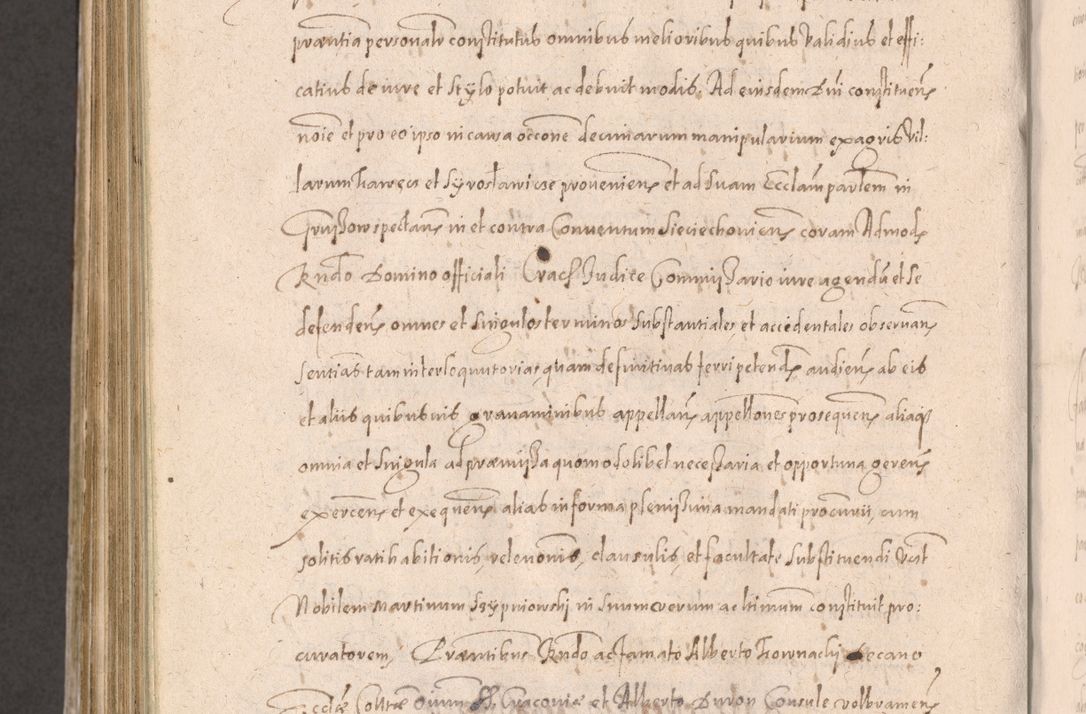 præntia personalr constitutus omnibus melioribus quibus validius et effi:
catius de iure et stylo potuit ac debuit modis. Ad eiusdem Dni constituens
noie et pro eo ipso in causa occone decimarum manipularium ex agris Vil:
larum et Syrosławice proveniens et ad suam Ecclam parlem in
spectans in et contra Conventum Sieciechoviens coram Admod
Rndo Domino officiali Crac Judice Commissario iure agendu et se
defendens omnes et singulos terminos substantiales et accidentales observans
sentias tam interloquutorias, quam definitivas ferri petend audiens ab eis
et aliis quibusuis gravaminibus appellans appellones prosequens aliaq
omnia et singula ad præmissa quomodolibet necessaria et opportuna gerens
exercens et exequens alias in forma plenissima mandati procurii, cum
solitis ratihabitionis, relevonis, clausulis, et facultate substituendi Vcit
Nobilem Martinum Szypniowski in suum verum ac ltimum constituit pro:
curatorem, Præntibus Rndo ac famato Alberto Kownacki Decano
Ecclæ Colltæ Oium SS. Cracoviæ et Alberto Duron Consule volbramens